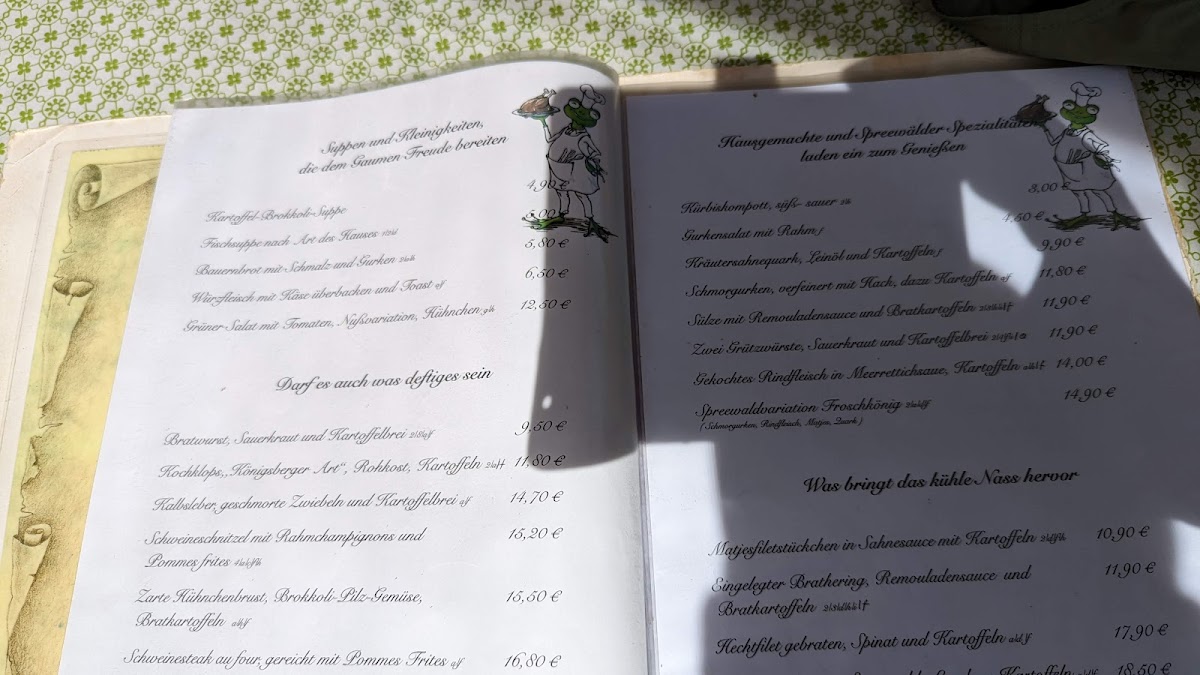 Suppen und Kleinigkeiten,
die dem Gaumen Freude bereiten
Kartoffel-Brokkoli-Suppe 4,90 €
Fischsuppe nach Art des Hauses 5,00 €
Bauernbrot mit Schmalz und Gurken 5,80 €
Würzfleisch mit Käse überbacken und Toast 6,50 €
Grüner Salat mit Tomaten, Nußvariation, Hühnchen 12,50 €
Darf es auch was deftiges sein
Bratwurst, Sauerkraut und Kartoffelbrei 9,50 €
Kochklops,,Königsberger Art“, Rohkost, Kartoffeln 11,80 €
Kalbsleber, geschmorte Zwiebeln und Kartoffelbrei 14,70 €
Schweineschnitzel mit Rahmchampignons und 15,20 €
Pommes frites
Zarte Hühnchenbrust, Brokkoli-Pilz-Gemüse, 15,50 €
Bratkartoffeln
Schweinesteak au four, gereicht mit Pommes Frites 16,80 €
Hausgemachte und Spreewälder Spezialitäten
laden ein zum Genießen
Kürbiskompott, süß- sauer 3,00 €
Gurkensalat mit Rahm f 4,50 €
Kräutersahnequark, Leinöl und Kartoffeln f 9,90 €
Schmorgurken, verfeinert mit Hack, dazu Kartoffeln 11,80 €
Sülze mit Remouladensauce und Bratkartoffeln 11,90 €
Zwei Grützwürste, Sauerkraut und Kartoffelbrei 11,90 €
Gekochtes Rindfleisch in Meerrettichsaue, Kartoffeln 14,00 €
Spreewaldvariation Froschkönig 14,90 €
( Schmorgurken, Rindfleisch, Matjes, Quark )
Was bringt das kühle Nass hervor
Matjesfiletstückchen in Sahnesauce mit Kartoffeln 10,90 €
Eingelegter Brathering, Remouladensauce und 11,90 €
Bratkartoffeln
Hechtfilet gebraten, Spinat und Kartoffeln 17,90 €
Kartoffeln 18,50 €